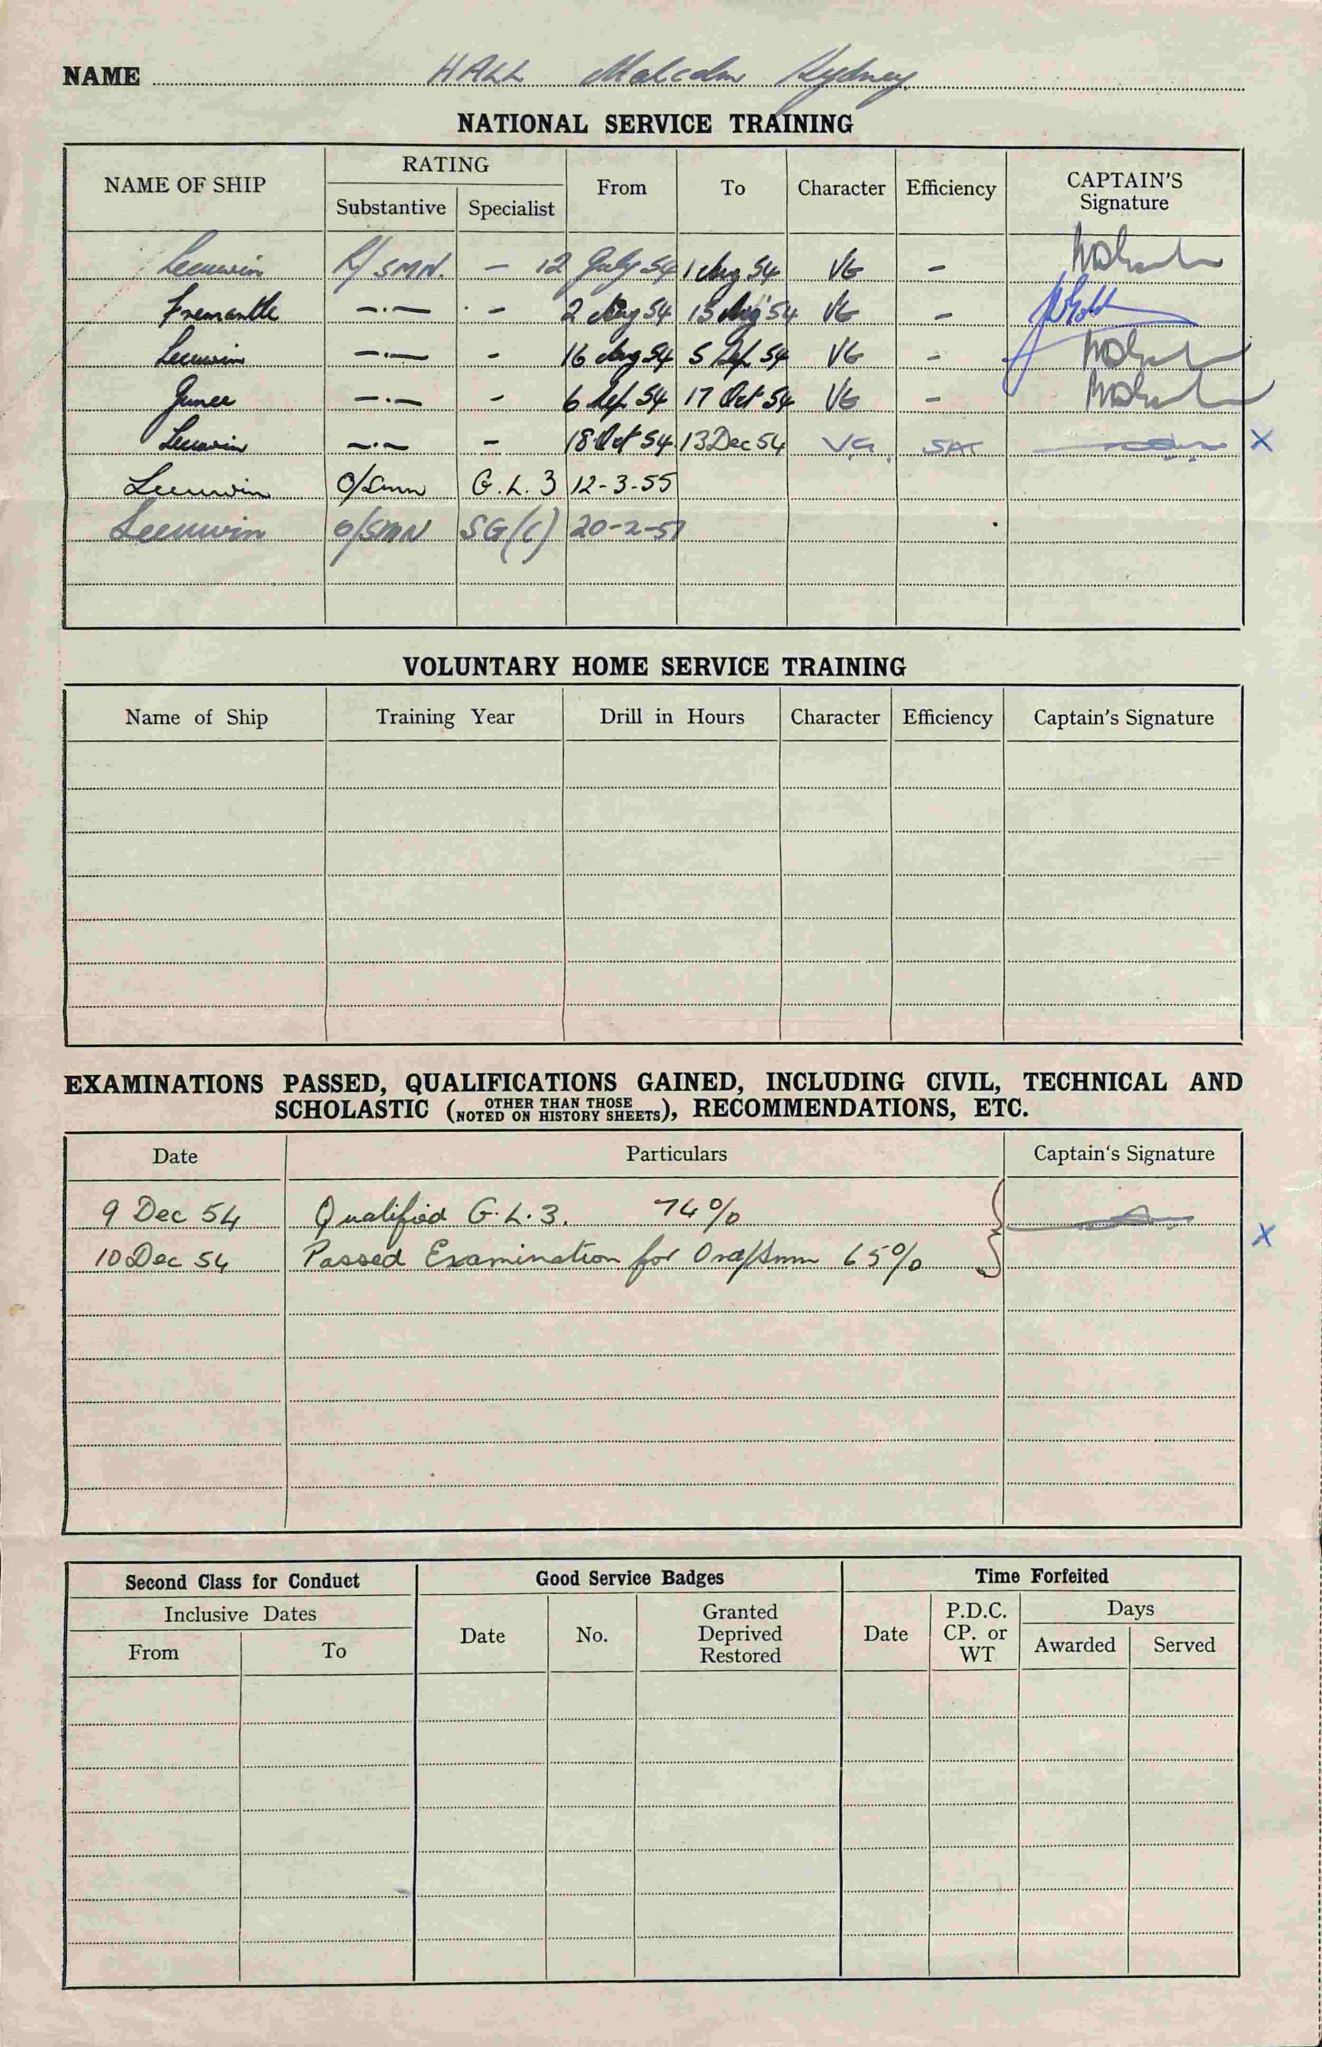 NAME HALL Malcolm Sydney
NATIONAL SERVICE TRAINING
NAME OF SHIP RATING From To Character Efficiency CAPTAIN'S Signature
Substantive Specialist
Leeuwin R/SMN. - 12 July 54 1 Aug 54 VG -
Fremantle —·— - 2 Aug 54 15 Aug 54 VG -
Leeuwin —·— - 16 Aug 54 5 Sep 54 VG -
Junee —·— - 6 Sep 54 17 Oct 54 VG -
Leeuwin —·— - 18 Oct 54 13 Dec 54 V.G. SAT X
Leeuwin O/Smn G.L.3 12-3-55
Leeuwin O/SMN SG(C) 20-2-57
VOLUNTARY HOME SERVICE TRAINING
Name of Ship Training Year Drill in Hours Character Efficiency Captain's Signature
EXAMINATIONS PASSED, QUALIFICATIONS GAINED, INCLUDING CIVIL, TECHNICAL AND
SCHOLASTIC (OTHER THAN THOSE NOTED ON HISTORY SHEETS), RECOMMENDATIONS, ETC.
Date Particulars Captain's Signature
9 Dec 54 Qualified G.L.3. 74%
10 Dec 54 Passed Examination for Ord/Smn 65% X
Second Class for Conduct Good Service Badges Time Forfeited
Inclusive Dates Date No. Granted Deprived Restored Date P.D.C. CP. or WT Days
From To Awarded Served